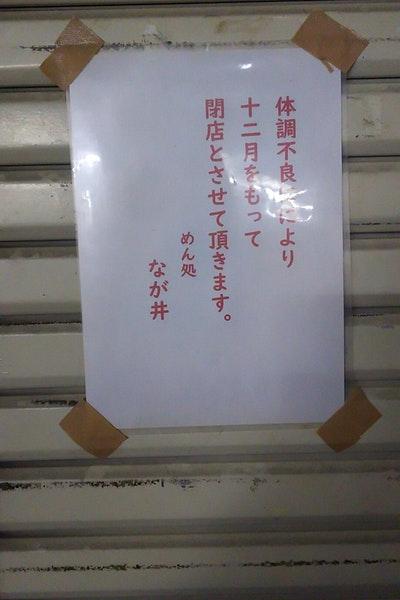 体調不良により
十二月をもって
閉店とさせて頂きます。
めん処
なが井